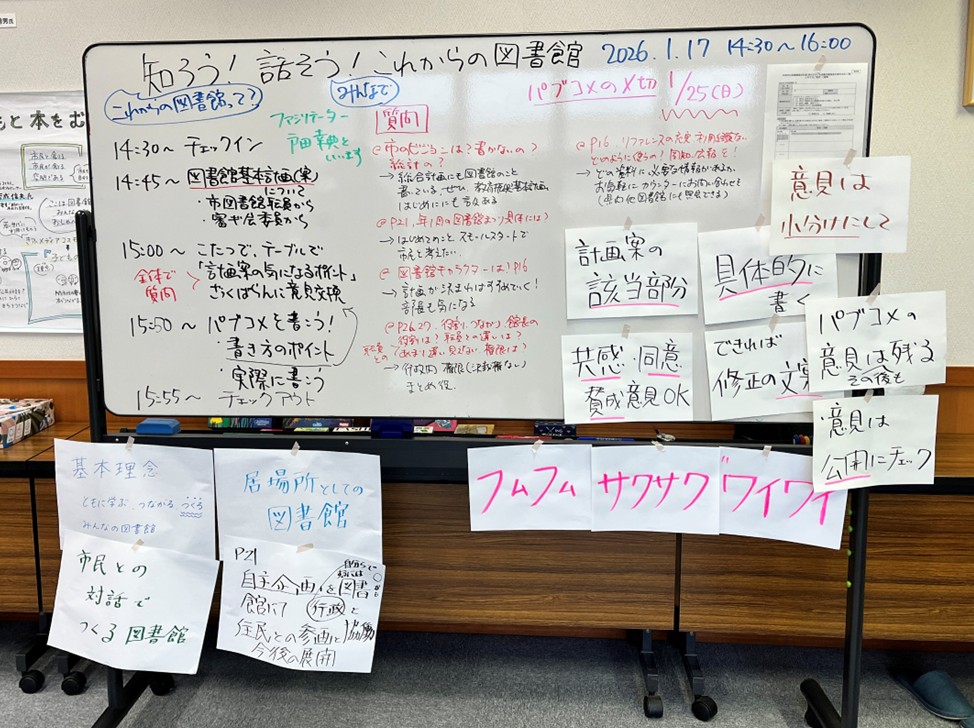 知ろう！話そう！これからの図書館 2026.1.17 14:30～16:00
これからの図書館って？
みんなで
パブコメの〆切 1/25(日)
ファシリテーター
戸田幸典と
いいます
14:30～ チェックイン
14:45～ 図書館基本計画(案)
について
・市図書館職員から
・審や会委員から
15:00～ こたつで、テーブルで
全体で
質問
「計画案の気になるポイント」
ざっくばらんに意見交換
15:50～ パブコメを書こう！
・書き方のポイント
・実際に書こう
15:55～ チェックアウト
質問
@市のビジョンは？書かないの？
総計の？
→総合計画にも図書館のこと
書いている。ぜひ、教育振興基本計画。
はじめににも
@P21、年1回の図書館まつり具体には？
→はじめてのこと スモールスタートで
市民と考えたい
@図書館キャラクターは！P16
→計画が決まればすすめていく！
部長も気になる
@P26.27
館長の
役割は？職員との違いは？
あまり違い見えない 権限は？
→行政的権限(決裁権ない)
まとめ役。
@P16 リファレンスの充実
どのように使うの！周知、広報を！
→どの資料に必要な情報があるか、
お気軽にカウンターにお問い合わせを
(県の他図書館にも照会できる)
意見は
小分けにして
計画案の
該当部分
具体的に
書く
共感・同意
賛成意見OK
できれば
修正の文案
パブコメの
意見は残る
その後も
意見は
公開にチェック
基本理念
ともに学ぶ、つながる、つくる
みんなの図書館
居場所としての
図書館
フムフム
サクサク
ワイワイ
市民との
対話で
つくる図書館
P21
自主企画を図書
館にて 行政と
住民との参画と協働
今後の展開
もと 本をむ